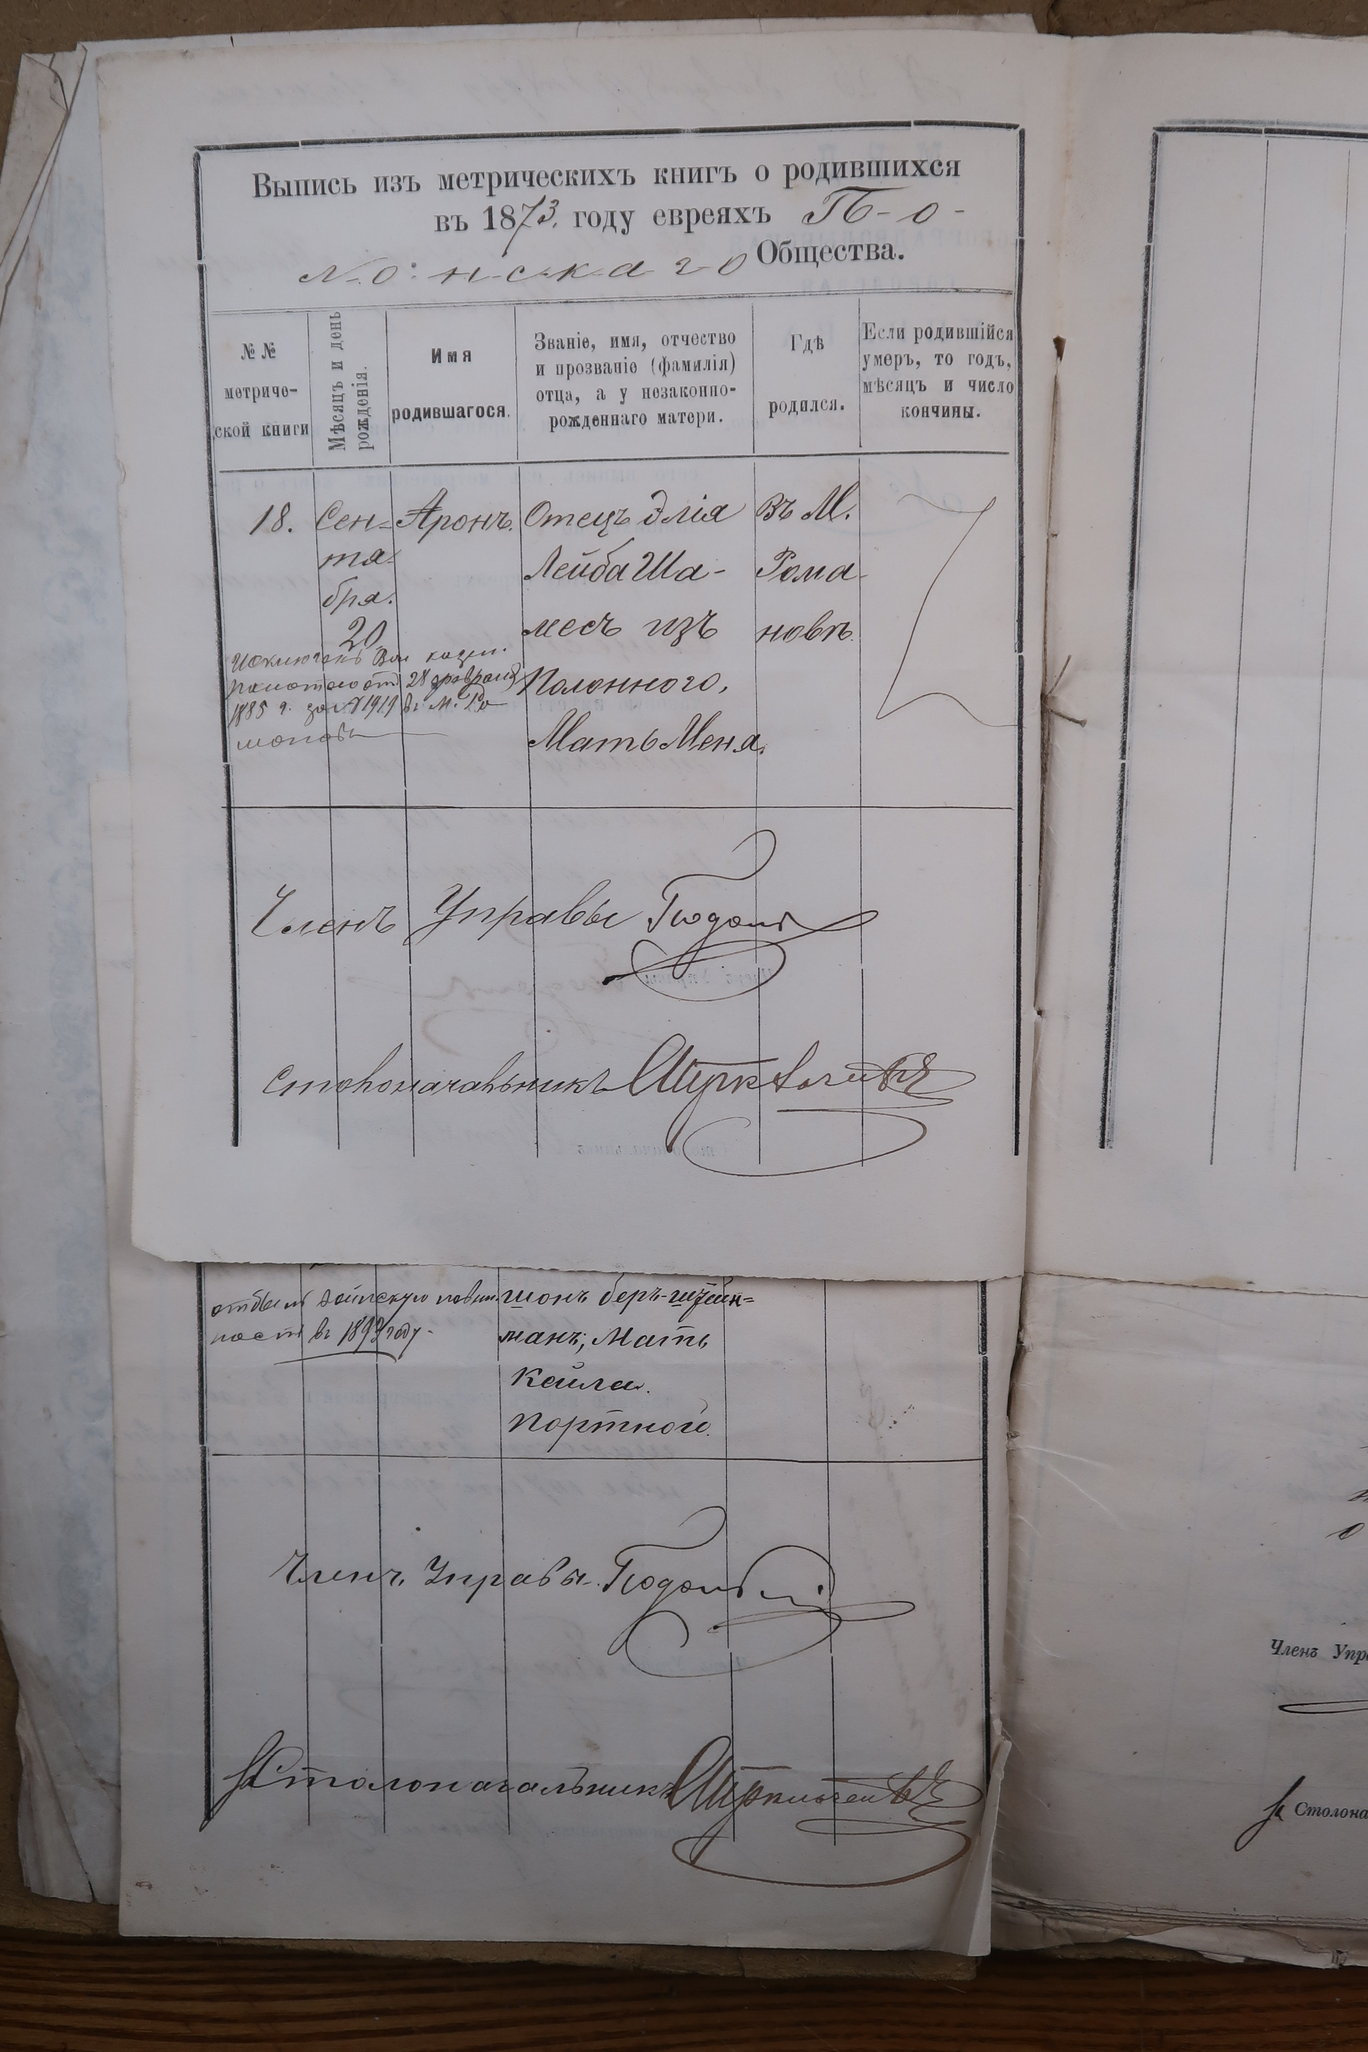 Выпись изъ метрическихъ книгъ о родившихся
въ 1873. году евреяхъ По-
лонскаго Общества.
№ №
метриче-
ской книги
Мѣсяцъ и день
рожденія.
Имя
родившагося.
Званіе, имя, отчество
и прозваніе (фамилія)
отца, а у незаконно-
рожденнаго матери.
Гдѣ
родился.
Если родившійся
умеръ, то годъ,
мѣсяцъ и число
кончины.
18.
Сен-
тя-
бря.
20
Аронъ.
Отецъ Элія
Лейба Ша-
месъ изъ
Полонного.
Мать Меня.
Въ М.
Рома-
новѣ.
28 февраля
1885 г. за № 1919 въ м. Ро-
мановѣ
Членъ Управы
Столоначальникъ
отбылъ воинскую повин-
ность въ 1893 году.
шонъ беръ-штейн=
манъ; Мать
Кейла.
Портного.
Членъ Управы
Столоначальникъ
Членъ Упра
Столона